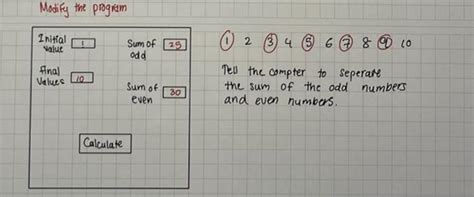 Modify the program
Initial value 1
Sum of odd 25
final values 10
Sum of even 30
Calculate
1 2 3 4 5 6 7 8 9 10
Tell the compter to seperate
the sum of the odd numbers
and even numbers.